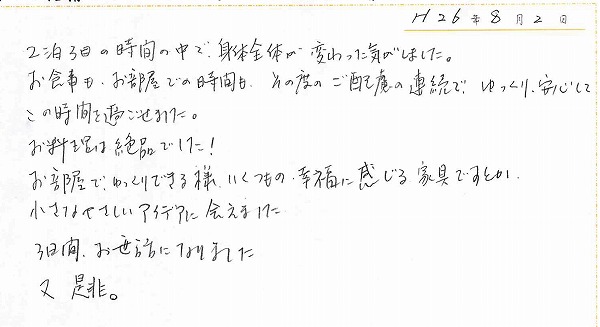 H26年8月2日
2泊3日の時間の中で、身体全体が変わった気がしました。
お食事も、お部屋での時間も、その度のご配慮の連続で、ゆっくり、安心して
この時間を過ごせました。
お料理は絶品でした!
お部屋で、ゆっくりできる様、いくつもの、幸福に感じる家具ですとか、
小さなやさしいアイデアに会えました
3日間、お世話になりました
又 是非。